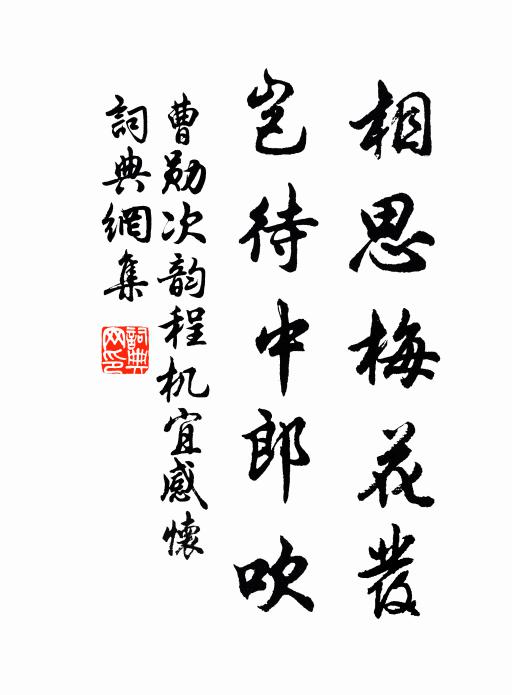 相思梅花發
岂待中郎吹
曹勛次韵程机宜感懷
詞典網集
詞典网印